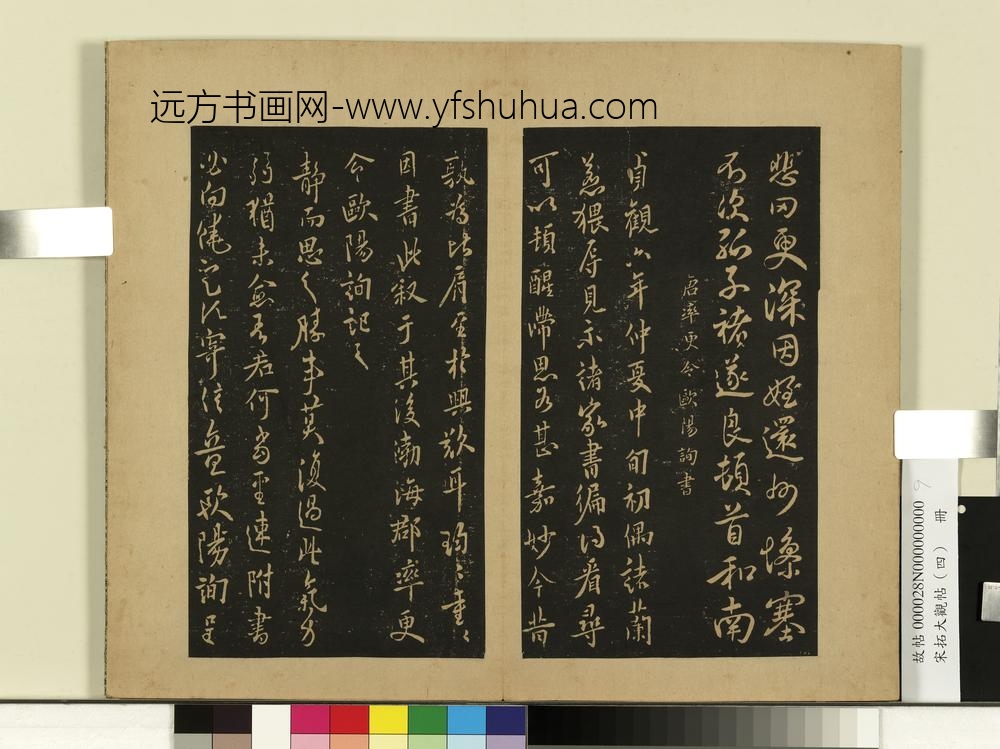 远方书画网-www.yfshuhua.com
悲罔更深因姪還州懆塞
不次孤子褚遂良頓首和南
唐率更令歐陽詢書
貞觀六年仲夏中旬初偶諸蘭
若猥辱見示諸家書編得看尋
可以頓醒滯思為甚嘉妙今昔
孰為比肩至於興歎耳珍之重之
因書此叙于其後渤海郡率更
令歐陽詢記之
靜而思之勝事莫復過此氣力
弱猶未愈吾君何當至速附書
必向饒定行寧信盡歐陽詢呈
故帖000028N000000000 9
宋拓大觀帖（四） 冊